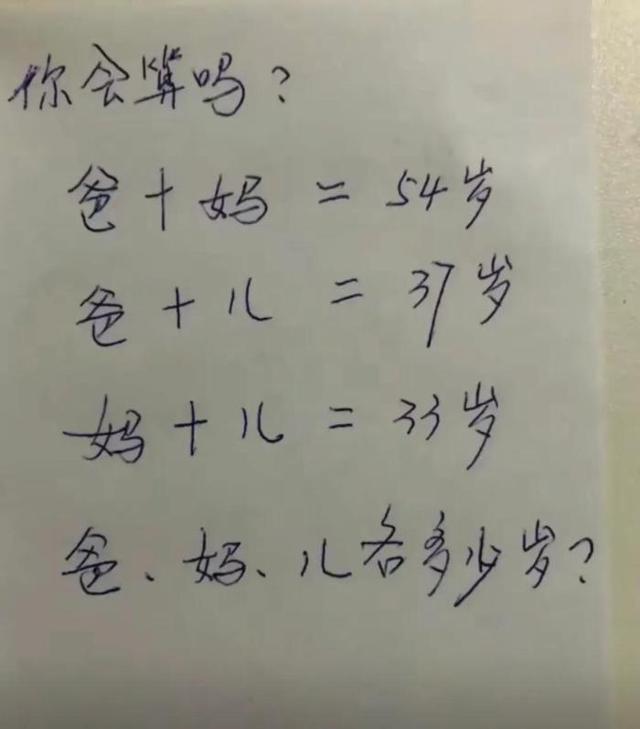 你会算吗?
爸+妈=54岁
爸+儿=37岁
妈+儿=33岁
爸、妈、儿各多少岁?